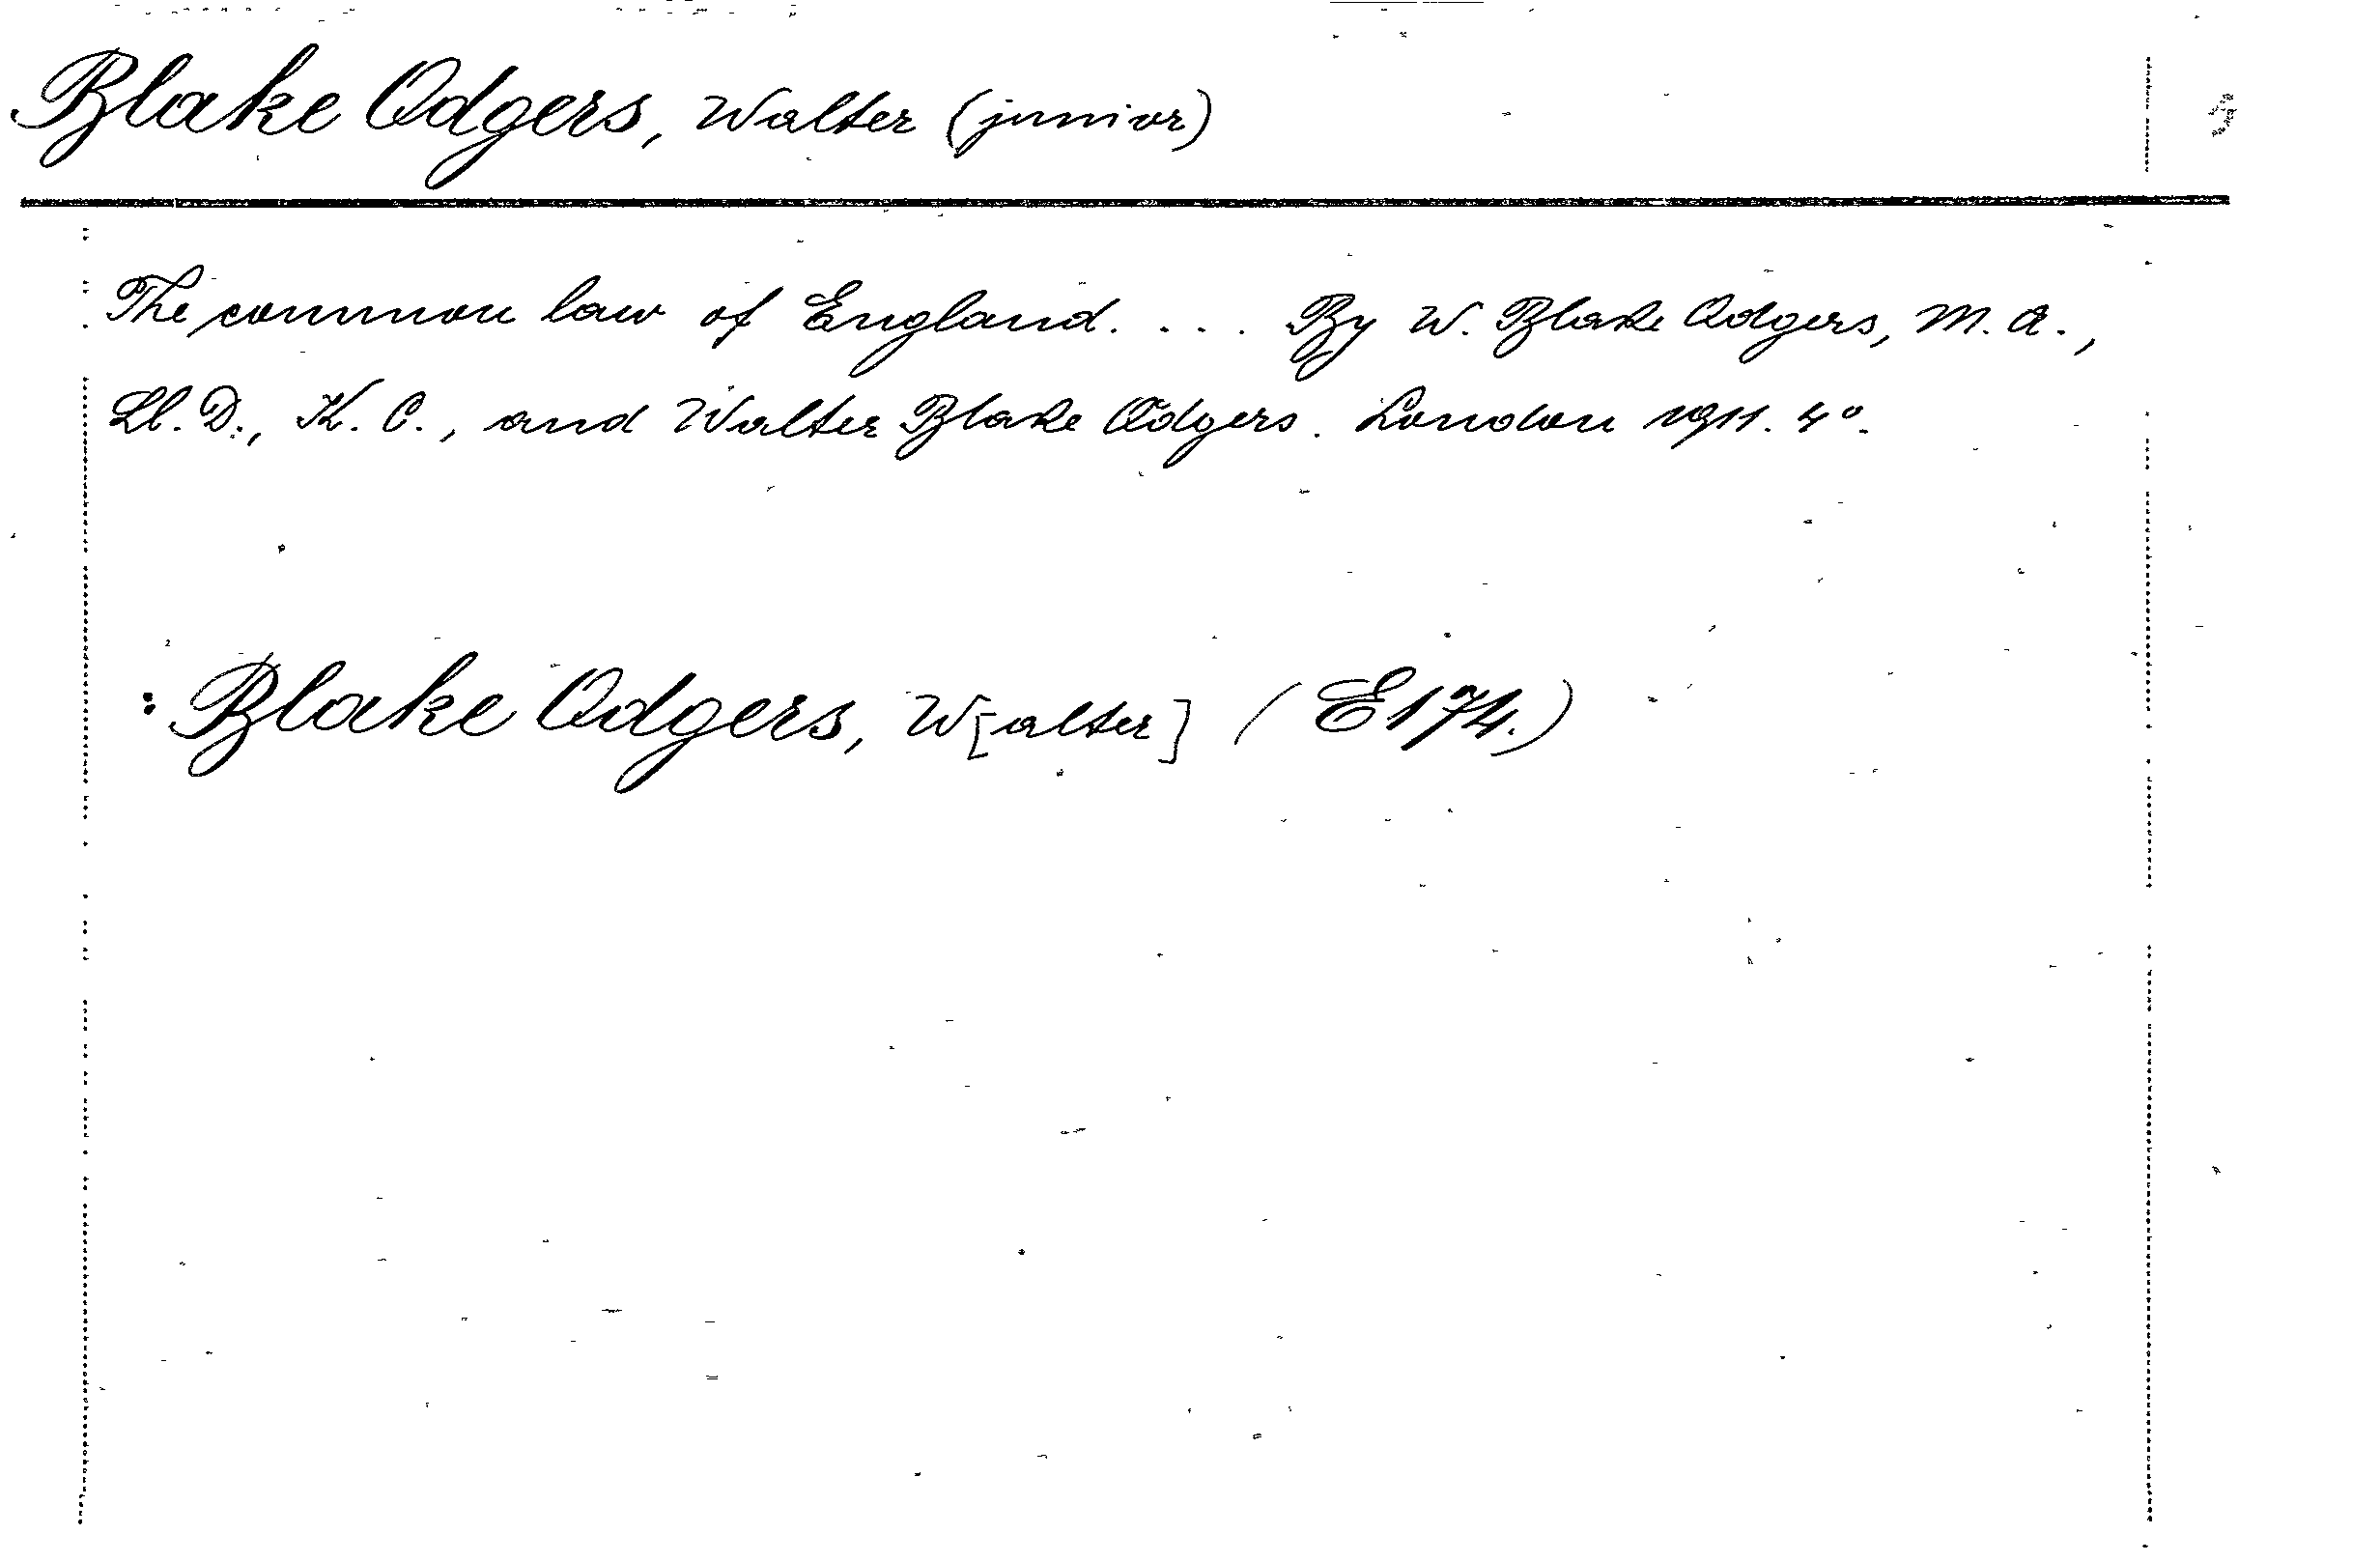 Blake Odgers, Walter (junior)
The common law of England. ... By W. Blake Odgers, M. A.,
Ll. D., K. C., and Walter Blake Odgers. London 1911. 4°.
: Blake Odgers, W[alter] (E174.)